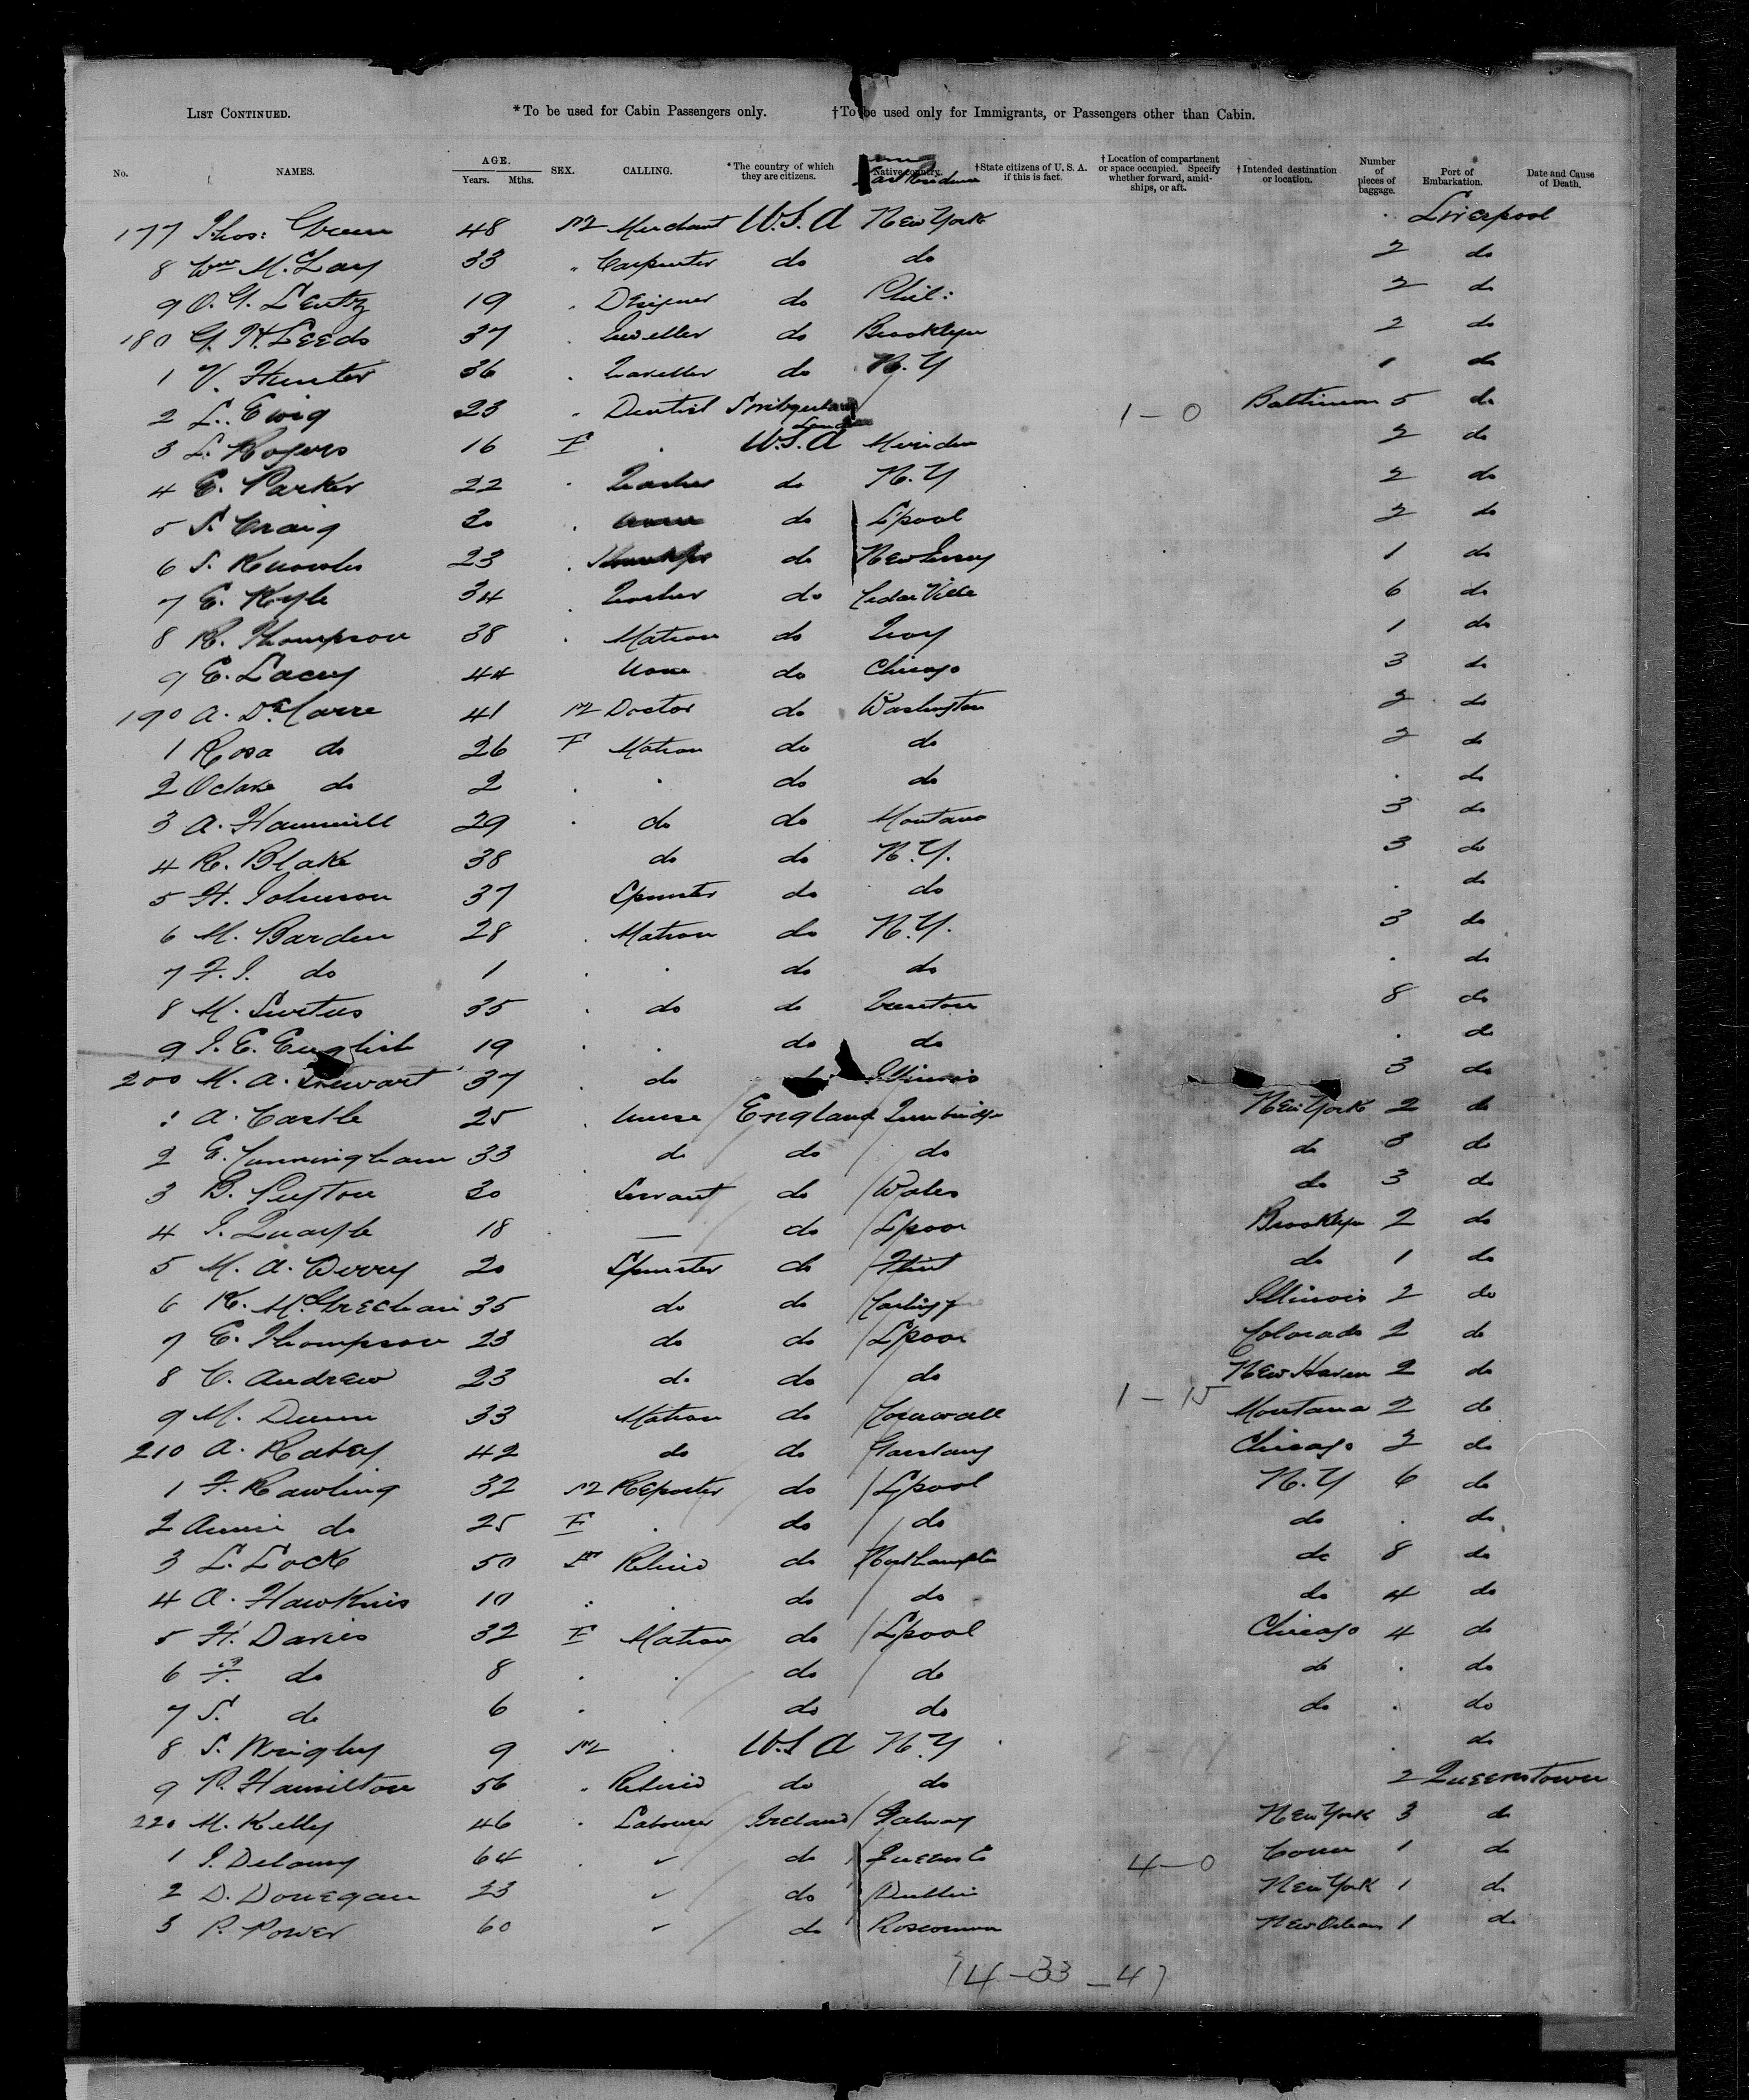 LIST CONTINUED. *To be used for Cabin Passengers only. †To be used only for Immigrants, or Passengers other than Cabin.
No. NAMES. AGE. Years. Mths. SEX. CALLING. *The country of which they are citizens. Native country. †State citizens of U. S. A. if this is fact. †Location of compartment or space occupied. Specify whether forward, amidships, or aft. †Intended destination or location. Number of pieces of baggage. Port of Embarkation. Date and Cause of Death.
177 Thos: 48 M Merchant U.S.A New York Liverpool
8 Wm M. Lay 33 " Carpenter do do 2 do
9 O. G. Lentz 19 " Designer do Phil: 2 do
180 G. H. Leeds 37 " Jweller do Brooklyn 2 do
1 V. Hunter 36 " Traveller do N.Y 1 do
2 L. Ewig 23 " Dentist 1-0 Baltimore 5 do
3 L. Rogers 16 F U.S.A Meriden 2 do
4 E. Parker 22 " Teacher do N.Y 2 do
5 S. Craig 30 " do L'pool 2 do
6 S. Knowles 23 " do New Jersey 1 do
7 E. Kyle 34 " Teacher do Cedar Ville 6 do
8 R. Thompson 38 " Matron do Troy 1 do
9 E. Lacey 44 None do Chicago 3 do
190 A. 41 M Doctor do Washington 2 do
1 Rosa do 26 F Matron do do 2 do
2 Octave do 2 " " do do " do
3 A. Hammill 29 " do do Montana 3 do
4 R. Blake 38 do do N.Y. 3 do
5 H. Johnson 37 Spinster do do " do
6 M. Barden 28 " Matron do N.Y. 3 do
7 F. J. do 1 " " do do " do
8 M. 35 " do do Trenton 8 do
9 J. E. English 19 " " do do " do
200 M. A. Stewart 37 " do Illinois 3 do
1 A. Castle 25 " Nurse England New York 2 do
2 E. Cunningham 33 do do do do 3 do
3 B. Peyton 30 Servant do Wales do 3 do
4 J. Quayle 18 — do L'pool Brooklyn 2 do
5 M. A. 20 Spinster do Flint do 1 do
6 K. 35 do do Illinois 2 do
7 E. Thompson 23 do do L'pool Colorado 2 do
8 C. Andrew 23 do do do New Haven 2 do
9 M. Dunn 33 Matron do Cornwall 1-15 Montana 2 do
210 A. Rabey 42 do do Garstang Chicago 2 do
1 F. Rawling 32 M Reporter do L'pool N.Y 6 do
2 Annie do 25 F " do do do " do
3 L. Lock 50 M Retired do Northampton do 8 do
4 A. Hawkins 10 " " do do do 4 do
5 H. Davies 32 F Matron do L'pool Chicago 4 do
6 F. do 8 " " do do do " do
7 S. do 6 " do do do " do
8 S. Wrigley 9 M " U.S.A N.Y " do
9 P. Hamilton 56 " Retired do do 2 Queenstown
220 M. Kelly 46 " Labourer Ireland Galway New York 3 do
1 J. Delaney 64 " ✓ do Queens Co 4-0 Conn 1 do
2 D. Donegan 23 ✓ do Dublin New York 1 do
3 P. Power 60 ✓ do Roscommon New Orleans 1 do
14-33-47